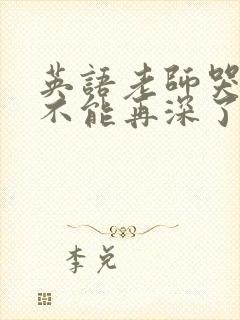 英語老師哭
不能再深了
李兌